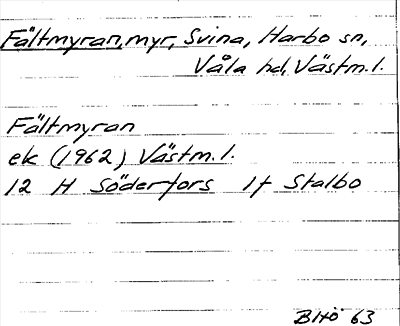 Fältmyran, myr, Svina, Harbo sn,
Våla hd, Västm. l.
Fältmyran
ek (1962) Västm. l.
12 H Söderfors 1f Stalbo
BHö 63